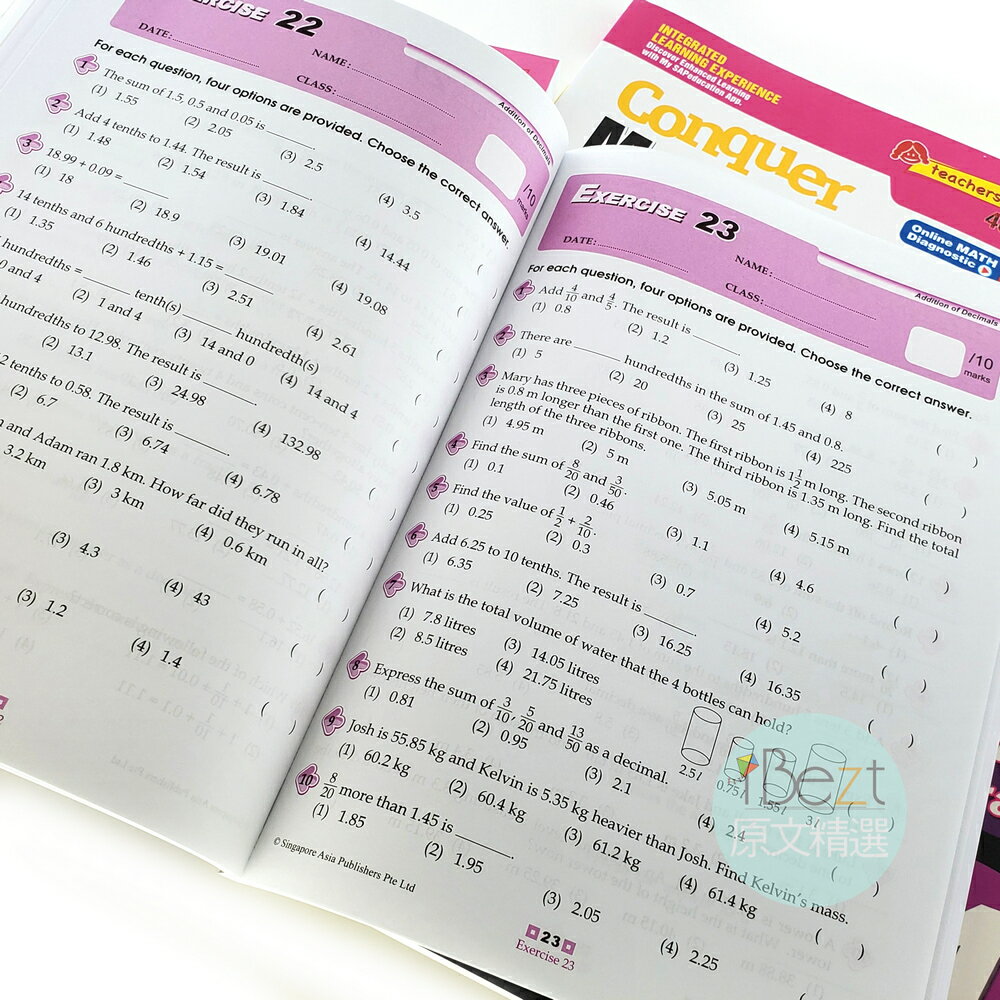 EXERCISE 22
DATE:
NAME:
CLASS:
Addition of Decimals
/10
marks
For each question, four options are provided. Choose the correct answer.
1 The sum of 1.5, 0.5 and 0.05 is
(1) 1.55 (2) 2.05 (3) 2.5 (4) 3.5
2 Add 4 tenths to 1.44. The result is
(1) 1.48 (2) 1.54 (3) 1.84 (4) 14.44
3 18.99 + 0.09 =
(1) 18 (2) 18.9 (3) 19.01 (4) 19.08
14 tenths and 6 hundredths + 1.15 =
(1) 1.35 (2) 1.46 (3) 2.51 (4) 2.61
hundredths = tenth(s) hundredth(s)
0 and 4 (2) 1 and 4 (3) 14 and 0 (4) 14 and 4
hundredths to 12.98. The result is
(2) 13.1 (3) 24.98 (4) 132.98
2 tenths to 0.58. The result is
(2) 6.7 (3) 6.74 (4) 6.78
and Adam ran 1.8 km. How far did they run in all?
3.2 km (3) 3 km (4) 0.6 km
(3) 4.3 (4) 43
(3) 1.2 (4) 1.4
EXERCISE 23
DATE:
NAME:
CLASS:
Addition of Decimals
/10
marks
For each question, four options are provided. Choose the correct answer.
1 Add 4/10 and 4/5. The result is
(1) 0.8 (2) 1.2 (3) 1.25 (4) 8
2 There are hundredths in the sum of 1.45 and 0.8.
(1) 5 (2) 20 (3) 25 (4) 225
3 Mary has three pieces of ribbon. The first ribbon is 1 1/2 m long. The second ribbon
is 0.8 m longer than the first one. The third ribbon is 1.35 m long. Find the total
length of the three ribbons.
(1) 4.95 m (2) 5 m (3) 5.05 m (4) 5.15 m
4 Find the sum of 8/20 and 3/50.
(1) 0.1 (2) 0.46 (3) 1.1 (4) 4.6
5 Find the value of 1/2 + 2/10.
(1) 0.25 (2) 0.3 (3) 0.7 (4) 5.2
6 Add 6.25 to 10 tenths. The result is
(1) 6.35 (2) 7.25 (3) 16.25 (4) 16.35
7 What is the total volume of water that the 4 bottles can hold?
(1) 7.8 litres (3) 14.05 litres
(2) 8.5 litres (4) 21.75 litres
2.5 l 0.75 l 1.55 l 3 l
8 Express the sum of 3/10, 5/20 and 13/50 as a decimal.
(1) 0.81 (2) 0.95 (3) 2.1 (4) 2.4
9 Josh is 55.85 kg and Kelvin is 5.35 kg heavier than Josh. Find Kelvin's mass.
(1) 60.2 kg (2) 60.4 kg (3) 61.2 kg (4) 61.4 kg
10 8/20 more than 1.45 is
(1) 1.85 (2) 1.95 (3) 2.05 (4) 2.25
© Singapore Asia Publishers Pte Ltd
23
Exercise 23
INTEGRATED
LEARNING EXPERIENCE
Discover Enhanced Learning
with My SAPeducation App.
Conquer
teachers
Online MATH
Diagnostic
iBezt
原文精選